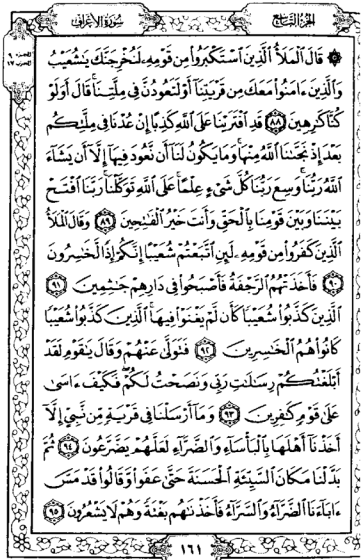 الجزء التاسع
سورة الأعراف
۞ قَالَ ٱلْمَلَأُ ٱلَّذِينَ ٱسْتَكْبَرُوا۟ مِن قَوْمِهِۦ لَنُخْرِجَنَّكَ يَـٰشُعَيْبُ
وَٱلَّذِينَ ءَامَنُوا۟ مَعَكَ مِن قَرْيَتِنَآ أَوْ لَتَعُودُنَّ فِى مِلَّتِنَا ۚ قَالَ أَوَلَوْ
كُنَّا كَـٰرِهِينَ ٨٨ قَدِ ٱفْتَرَيْنَا عَلَى ٱللَّهِ كَذِبًا إِنْ عُدْنَا فِى مِلَّتِكُم
بَعْدَ إِذْ نَجَّىٰنَا ٱللَّهُ مِنْهَا ۚ وَمَا يَكُونُ لَنَآ أَن نَّعُودَ فِيهَآ إِلَّآ أَن يَشَآءَ
ٱللَّهُ رَبُّنَا ۚ وَسِعَ رَبُّنَا كُلَّ شَىْءٍ عِلْمًا ۚ عَلَى ٱللَّهِ تَوَكَّلْنَا ۚ رَبَّنَا ٱفْتَحْ
بَيْنَنَا وَبَيْنَ قَوْمِنَا بِٱلْحَقِّ وَأَنتَ خَيْرُ ٱلْفَـٰتِحِينَ ٨٩ وَقَالَ ٱلْمَلَأُ
ٱلَّذِينَ كَفَرُوا۟ مِن قَوْمِهِۦ لَئِنِ ٱتَّبَعْتُمْ شُعَيْبًا إِنَّكُمْ إِذًا لَّخَـٰسِرُونَ
٩٠ فَأَخَذَتْهُمُ ٱلرَّجْفَةُ فَأَصْبَحُوا۟ فِى دَارِهِمْ جَـٰثِمِينَ ٩١
ٱلَّذِينَ كَذَّبُوا۟ شُعَيْبًا كَأَن لَّمْ يَغْنَوْا۟ فِيهَا ۚ ٱلَّذِينَ كَذَّبُوا۟ شُعَيْبًا
كَانُوا۟ هُمُ ٱلْخَـٰسِرِينَ ٩٢ فَتَوَلَّىٰ عَنْهُمْ وَقَالَ يَـٰقَوْمِ لَقَدْ
أَبْلَغْتُكُمْ رِسَـٰلَـٰتِ رَبِّى وَنَصَحْتُ لَكُمْ ۖ فَكَيْفَ ءَاسَىٰ
عَلَىٰ قَوْمٍ كَـٰفِرِينَ ٩٣ وَمَآ أَرْسَلْنَا فِى قَرْيَةٍ مِّن نَّبِىٍّ إِلَّآ
أَخَذْنَآ أَهْلَهَا بِٱلْبَأْسَآءِ وَٱلضَّرَّآءِ لَعَلَّهُمْ يَضَّرَّعُونَ ٩٤ ثُمَّ
بَدَّلْنَا مَكَانَ ٱلسَّيِّئَةِ ٱلْحَسَنَةَ حَتَّىٰ عَفَوا۟ وَّقَالُوا۟ قَدْ مَسَّ
ءَابَآءَنَا ٱلضَّرَّآءُ وَٱلسَّرَّآءُ فَأَخَذْنَـٰهُم بَغْتَةً وَهُمْ لَا يَشْعُرُونَ ٩٥
١٦١